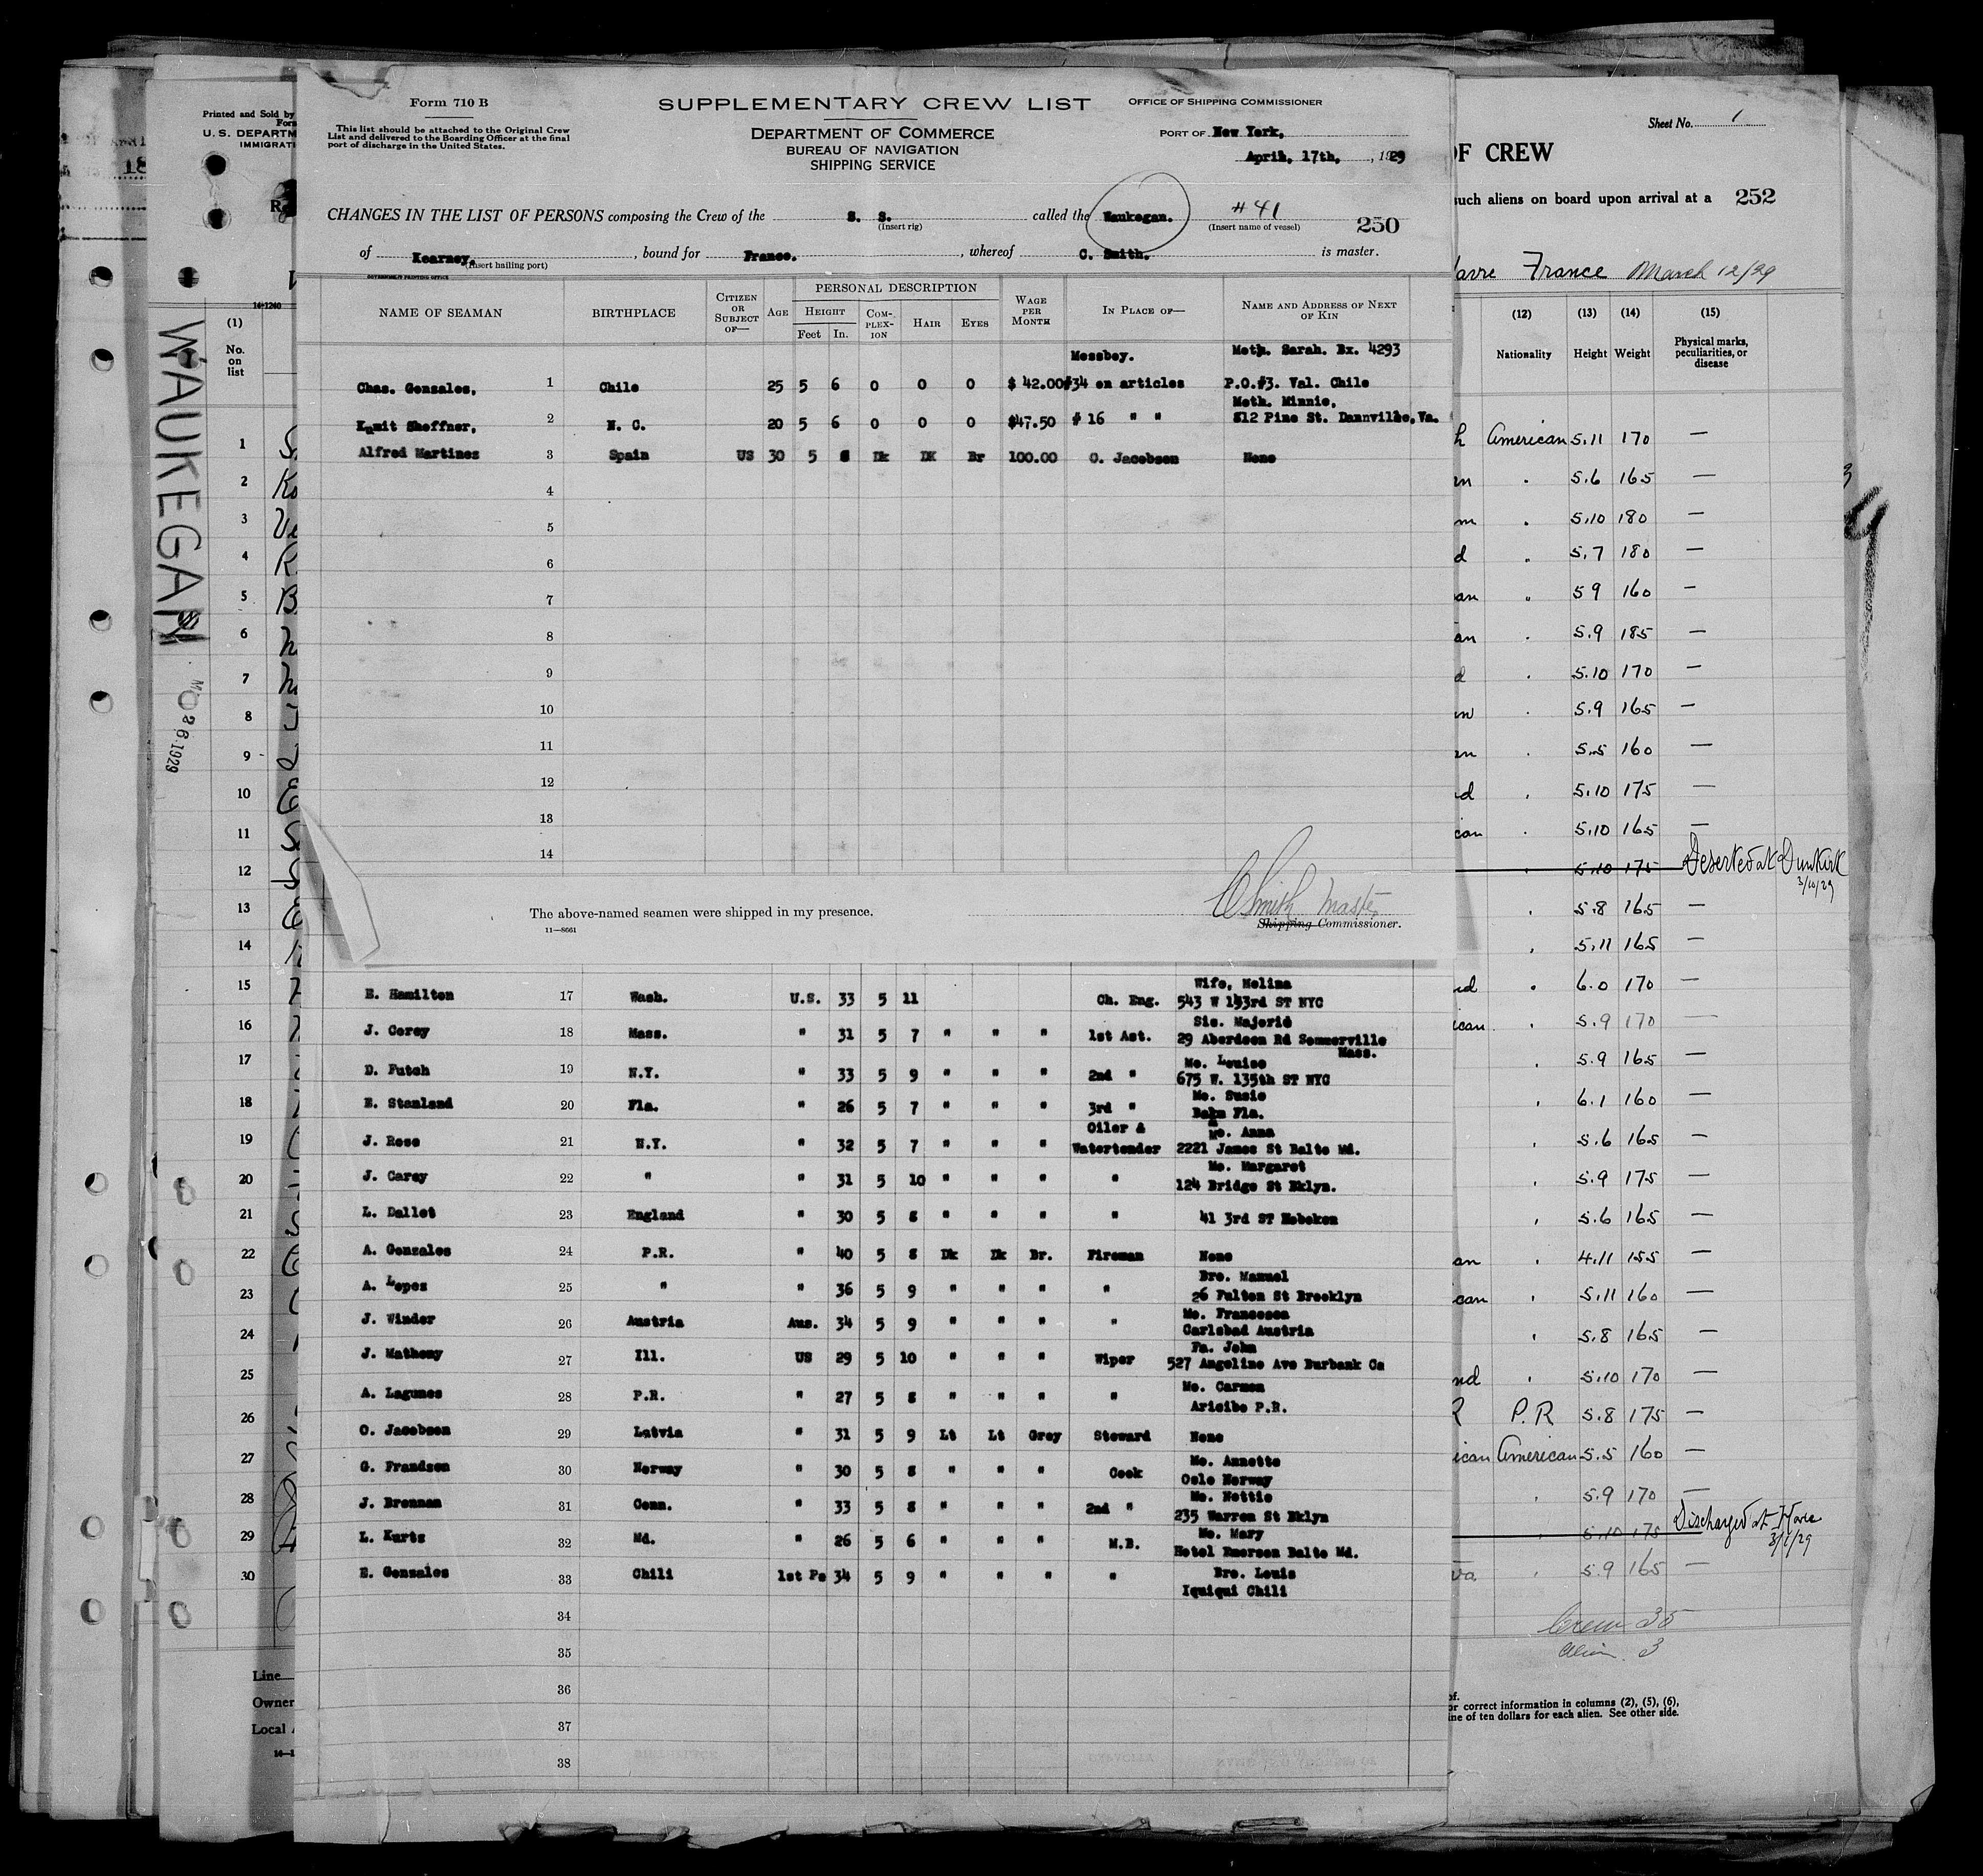 Form 710 B
This list should be attached to the Original Crew
List and delivered to the Boarding Officer at the final
port of discharge in the United States.
SUPPLEMENTARY CREW LIST
DEPARTMENT OF COMMERCE
BUREAU OF NAVIGATION
SHIPPING SERVICE
OFFICE OF SHIPPING COMMISSIONER
PORT OF New York,
April, 17th, , 1929
CHANGES IN THE LIST OF PERSONS composing the Crew of the S. S. called the Waukegan. #41
(Insert rig) (Insert name of vessel) 250
of Kearney, , bound for France. , whereof C. Smith. is master.
(Insert hailing port)
GOVERNMENT PRINTING OFFICE
NAME OF SEAMAN BIRTHPLACE CITIZEN OR SUBJECT OF— AGE PERSONAL DESCRIPTION HEIGHT Feet In. COM-PLEX-ION HAIR EYES WAGE PER MONTH IN PLACE OF— NAME AND ADDRESS OF NEXT OF KIN
Messboy. Moth. Sarah. Bx. 4293
Chas. Gonzales, 1 Chile 25 5 6 0 0 0 $ 42.00 #34 on articles P.O.#3. Val. Chile
Moth. Minnie,
Kumit Sheffner, 2 N. C. 20 5 6 0 0 0 $47.50 # 16 " " 812 Pine St. Dannville, Va.
Alfred Martinez 3 Spain US 30 5 8 Dk DK Br 100.00 O. Jacobsen None
4
5
6
7
8
9
10
11
12
13
14
The above-named seamen were shipped in my presence.
11—8661
C Smith Master
Shipping Commissioner.
Wife, Melina
E. Hamilton 17 Wash. U.S. 33 5 11 Ch. Eng. 543 W 193rd ST NYC
Sis. Majorie
J. Corey 18 Mass. " 31 5 7 " " " 1st Ast. 29 Aberdeen Rd Sommerville
Mass.
Mo. Louise
D. Futch 19 N.Y. " 33 5 9 " " " 2nd " 675 W. 135th ST NYC
Mo. Susie
E. Stanland 20 Fla. " 26 5 7 " " " 3rd " Fla.
Oiler & Mo. Anna
J. Rose 21 N.Y. " 32 5 7 " " " Watertender 2221 James St Balto Md.
Mo. Margaret
J. Carey 22 " " 31 5 10 " " " " 124 Bridge St Bklyn.
L. Dallet 23 England " 30 5 8 " " " " 41 3rd ST Hoboken
A. Gonzales 24 P.R. " 40 5 8 Dk Dk Br. Fireman None
Bro. Manuel
A. Lopez 25 " " 36 5 9 " " " " 26 Fulton St Brooklyn
Mo. Francesca
J. Winder 26 Austria Aus. 34 5 9 " " " " Carlsbad Austria
Fa. John
J. Matheny 27 Ill. US 29 5 10 " " " Wiper 527 Angeline Ave Burbank Ca
Mo. Carmen
A. Lagunes 28 P.R. " 27 5 8 " " " " Aricibo P.R.
O. Jacobsen 29 Latvia " 31 5 9 Lt Lt Grey Steward None
Mo. Annette
G. Frandsen 30 Norway " 30 5 8 " " " Cook Oslo Norway
Mo. Nettie
J. Brennan 31 Conn. " 33 5 8 " " " 2nd " 235 Warren St Bklyn
Mo. Mary
L. Kurtz 32 Md. " 26 5 6 " " " M.B. Hotel Emerson Balto Md.
Bro. Louis
E. Gonzales 33 Chili 1st Pa 34 5 9 " " " " Iquiqui Chili
34
35
36
37
38
Printed and Sold by
U. S. DEPARTM
IMMIGRATI
14-1240
WAUKEGAN
26 1929
(1)
No. on list
1
2
3
4
5
6
7
8
9
10
11
12
13
14
15
16
17
18
19
20
21
22
23
24
25
26
27
28
29
30
Line
Owner
Local
Sheet No. 1
OF CREW
such aliens on board upon arrival at a 252
France March 12/29
(12) (13) (14) (15)
Nationality Height Weight Physical marks, peculiarities, or disease
American 5.11 170 —
" 5.6 165 —
" 5.10 180 —
" 5.7 180 —
" 5 9 160 —
" 5.9 185 —
" 5.10 170 —
" 5.9 165 —
" 5.5 160 —
" 5.10 175 —
" 5.10 165 —
" 5.10 175 Deserted at Dunkirk
3/10/29
" 5.8 165 —
" 5.11 165 —
" 6.0 170 —
" 5.9 170 —
" 5.9 165 —
" 6.1 160 —
" 5.6 165 —
" 5.9 175 —
" 5.6 165 —
" 4.11 155 —
" 5.11 160 —
" 5.8 165 —
" 5.10 170 —
P.R 5.8 175 —
American 5.5 160 —
" 5.9 170 —
" 5.10 175 Discharged at Havre
" 5.9 165 —
Crew 35
Alien 3
or correct information in columns (2), (5), (6),
ine of ten dollars for each alien. See other side.